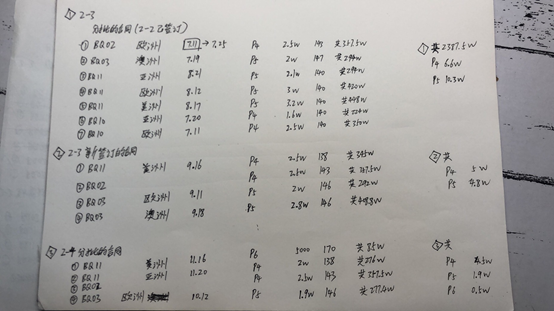 ① 2-3
分批的合同 (2-2 已签订)
① BQ02 欧洲 7.11→7.25 P4 2.5w 143 共357.5w
② BQ03 澳洲 7.19 P5 2w 147 共294w
③ BQ11 亚洲 8.21 P5 2.1w 140 共294w
④ BQ11 欧洲 8.12 P5 3w 140 共420w
⑤ BQ11 美洲 8.17 P5 3.2w 140 共448w
⑥ BQ10 亚洲 7.20 P4 1.6w 140 共224w
⑦ BQ10 欧洲 7.11 P4 2.5w 140 共350w
① 共2387.5w
P4 6.6w
P5 10.3w
② 2-3 新签订的合同
① BQ11 9.16 P4 2.5w 138 共345w
P4 2.5w 143 共357.5w
② BQ02
③ BQ03 欧洲 9.11 P5 2w 146 共292w
④ BQ03 澳洲 9.18 P5 2.8w 146 共408.8w
② 共
P4 5w
P5 4.8w
③ 2-4 分批的合同
P6 5000 170 共85w
① BQ11 美洲 11.16 P4 2w 138 共276w
② BQ11 亚洲 11.20 P4 2.5w 143 共357.5w
③ BQ02
④ BQ03 欧洲 10.12 P5 1.9w 146 共277.4w
③ 共
P4 4.5w
P5 1.9w
P6 0.5w